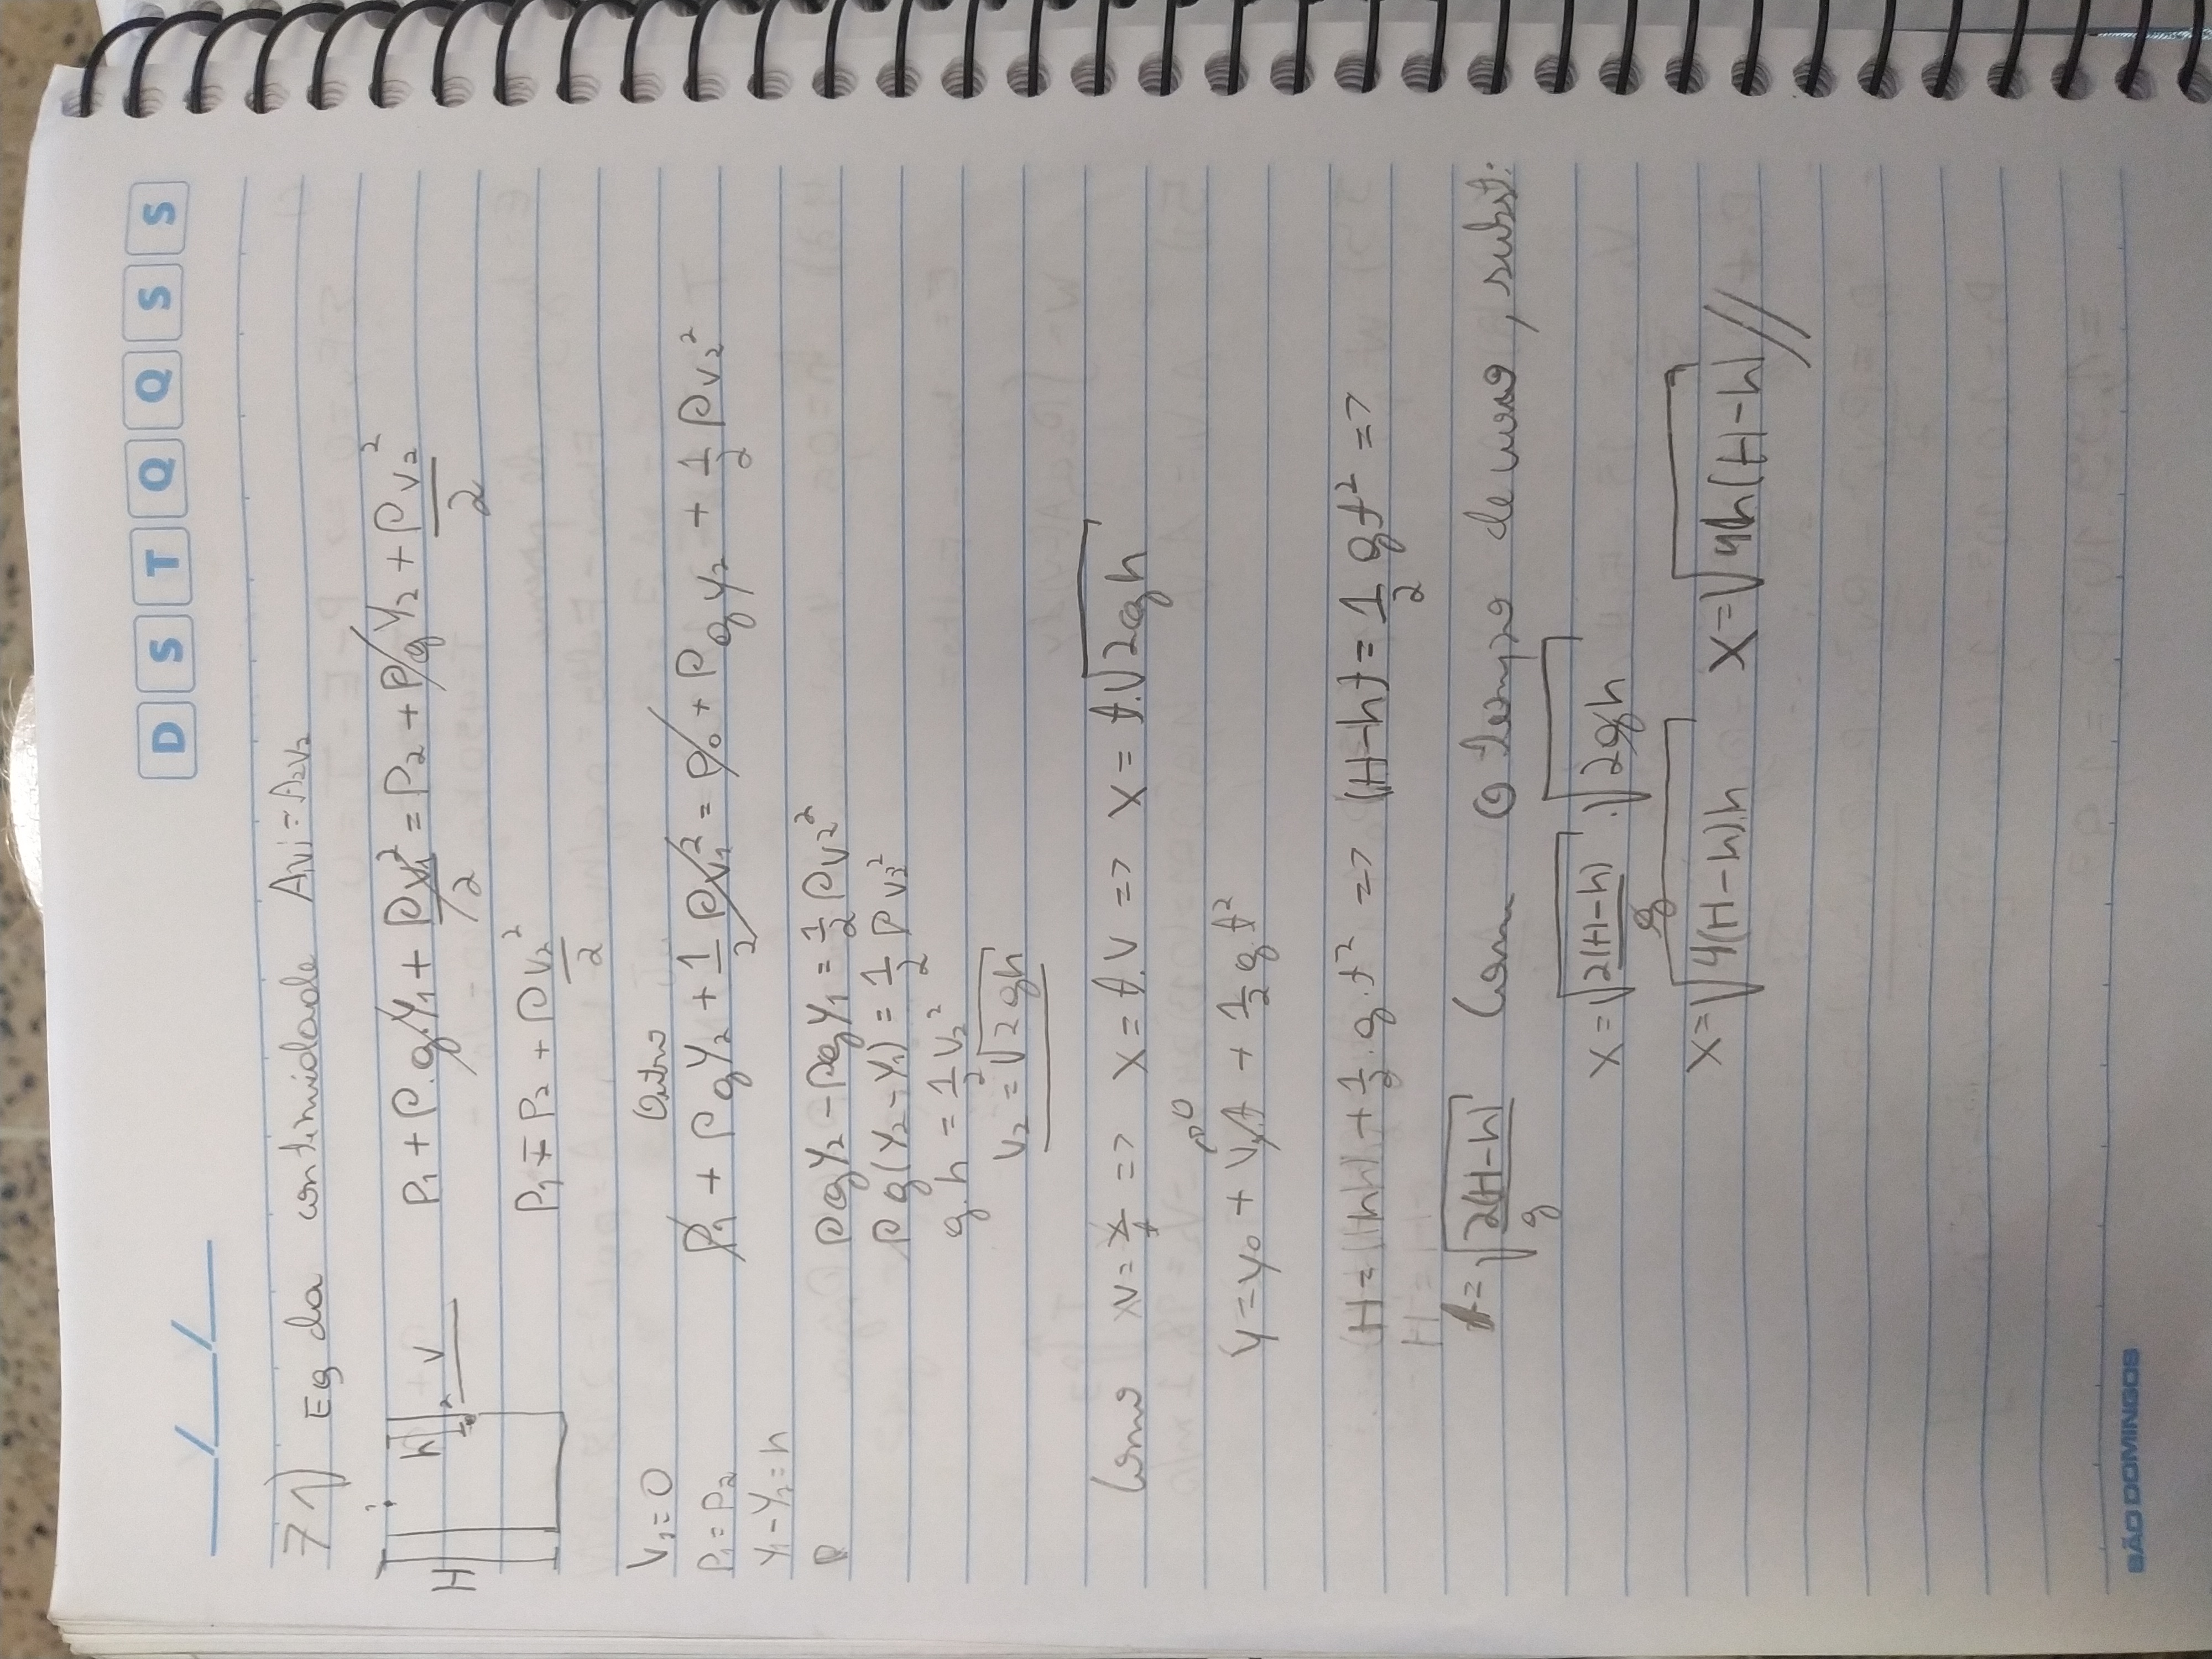 __/__/__ D S T Q Q S S
71) Eq da continuidade A₁v₁ = A₂v₂
H h v P₁ + ρ.g.y₁ + ρv₁²/2 = P₂ + ρgy₂ + ρv₂²/2
P₁ = P₂ + ρv₂²/2
V₁ = 0
P₁ = P₂ P₁ + ρgy₂ + 1/2 ρv₁² = P₀ + ρgy₂ + 1/2 ρv₂²
y₁ - y₂ = h
ρ ρgy₂ - ρgy₁ = 1/2 ρv₂²
ρg(y₂ - y₁) = 1/2 ρv₂²
g.h = 1/2 v₂²
v₂ = √2gh
Como v = x/t => x = t.v => x = t.√2gh
y = y₀ + v.t + 1/2 g.t² 0
H = h + 1/2.g.t² => (H-h) = 1/2 gt² =>
t = √2(H-h)/g Com o tempo de voo, subst:
x = √2(H-h)/g . √2gh
x = √4(H-h).h x = √4h(H-h) //
SÃO DOMINGOS